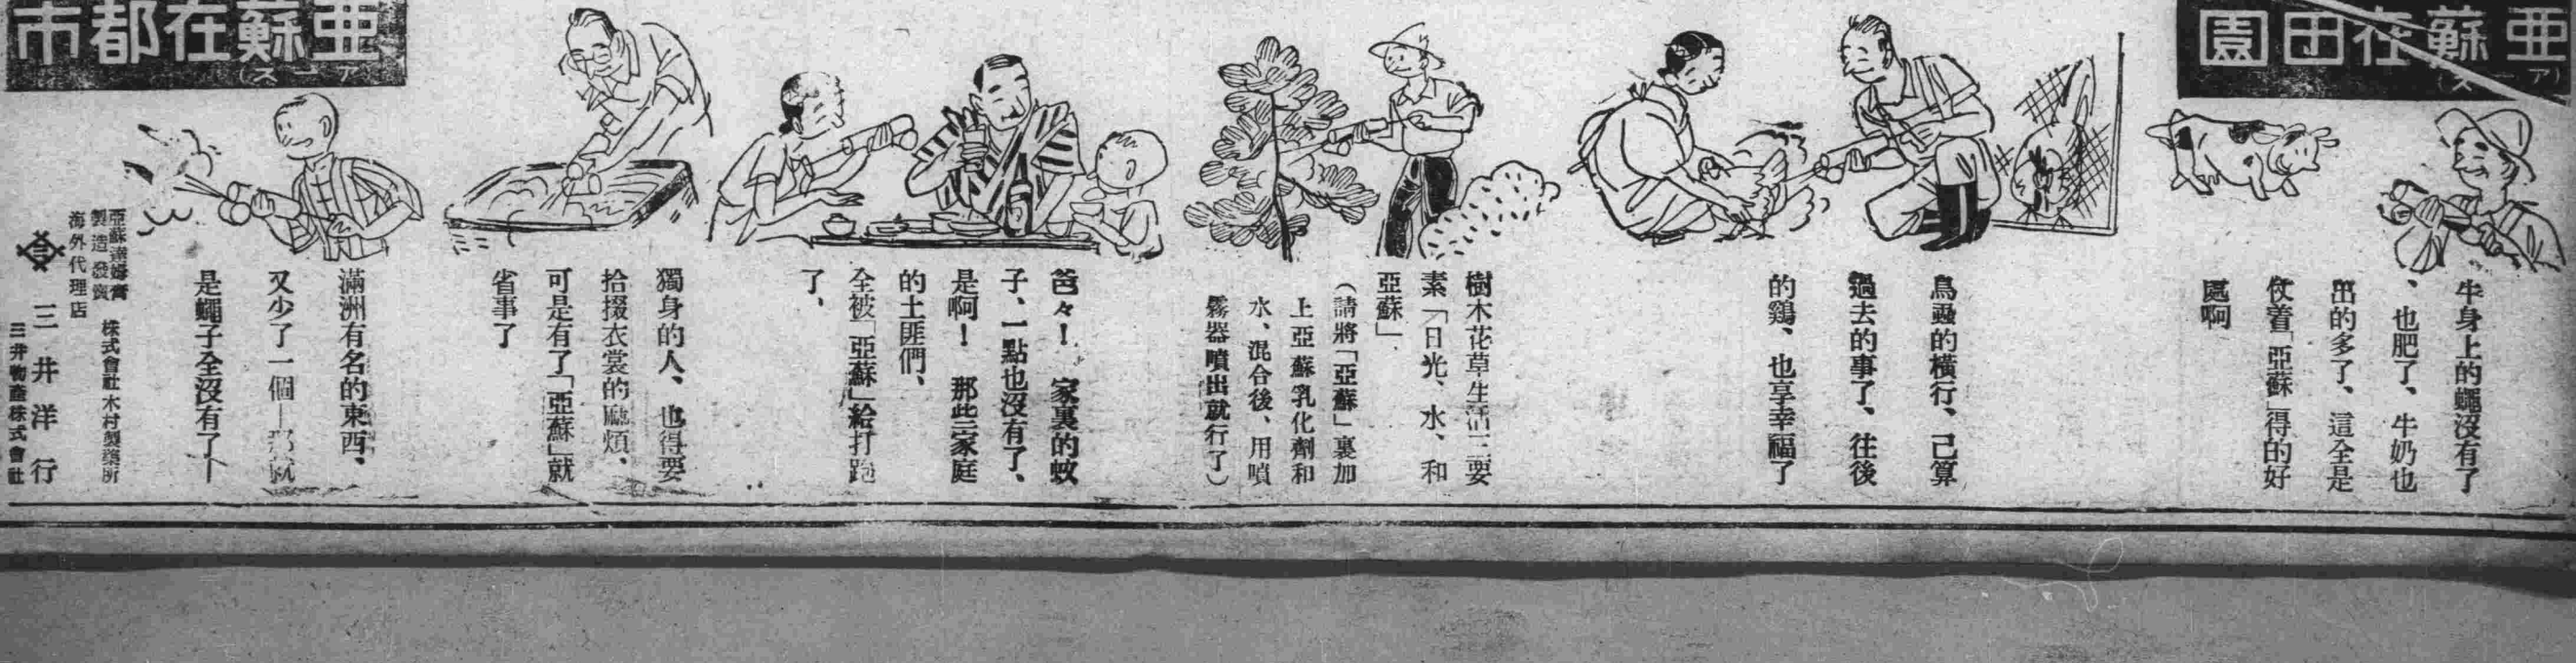 亜蘇在田園
(アース)
牛身上的蠅沒有了
、也肥了、牛奶也
出的多了、這全是
仗着「亞蘇」得的好
處啊
鳥蝨的橫行、己算
過去的事了、往後
的鷄、也享幸福了
樹木花草生活三要
素「日光、水、和
亞蘇」
(請將「亞蘇」裏加
上亞蘇乳化劑和
水、混合後、用噴
霧器噴出就行了)
亜蘇在都市
(アース)
爸々！ 家裏的蚊
子、一點也沒有了、
是啊！ 那些家庭
的土匪們、
全被「亞蘇」給打跑
了、
獨身的人、也得要
拾掇衣裳的麻煩、
可是有了「亞蘇」就
省事了
滿洲有名的東西、
又少了一個—那就
是蠅子全沒有了—
製造發賣 株式會社木村製藥所
海外代理店
三井洋行
三井物產株式會社